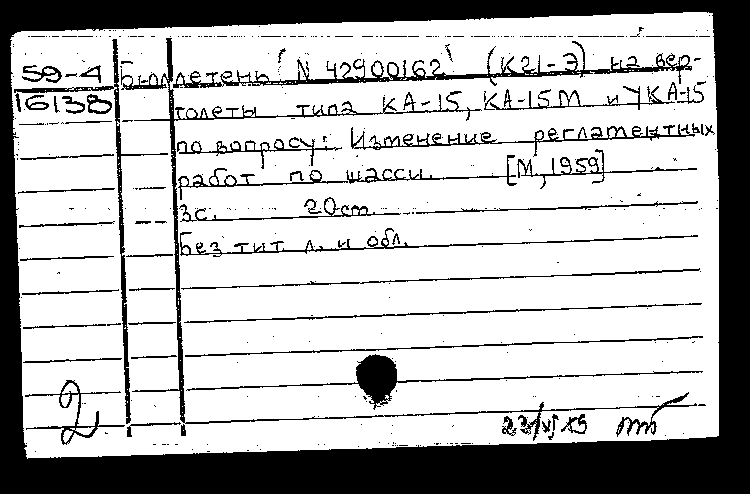 59-4 Бюллетень N 42900162 (К21-Э) на вер-
16138 толеты типа КА-15, КА-15М и УКА-15
по вопросу: Изменение регламентных
работ по шасси. [М, 1959]
3с. 20см.
Без тит. л. и обл.
2